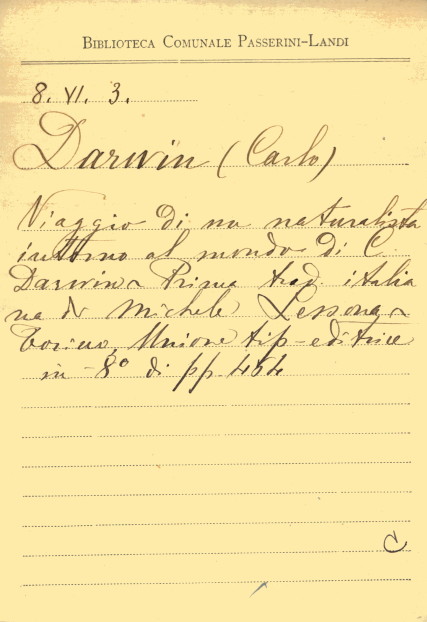 BIBLIOTECA COMUNALE PASSERINI-LANDI
8. VI. 3.
Darwin (Carlo)
Viaggio di un naturalista
intorno al mondo di C.
Darwin - Prima trad. italia
na di Michele Lessona -
Torino, Unione tip-editrice
in-8° di pp. 464
C